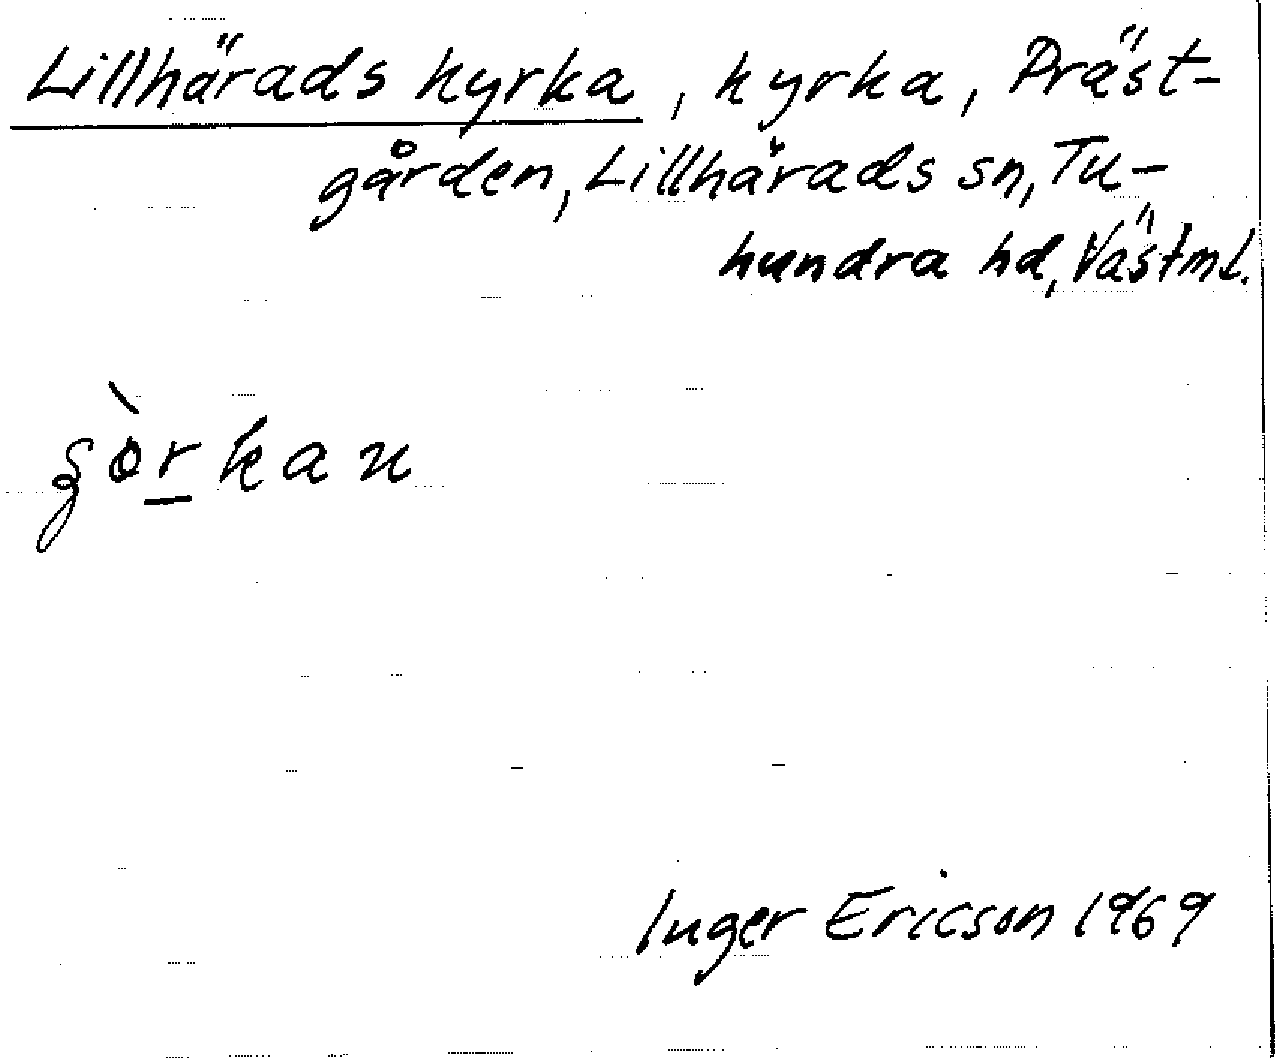 Lillhärads kyrka, kyrka, Präst-
gården, Lillhärads sn, Tu-
hundra hd, Västml.
Inger Ericson 1969